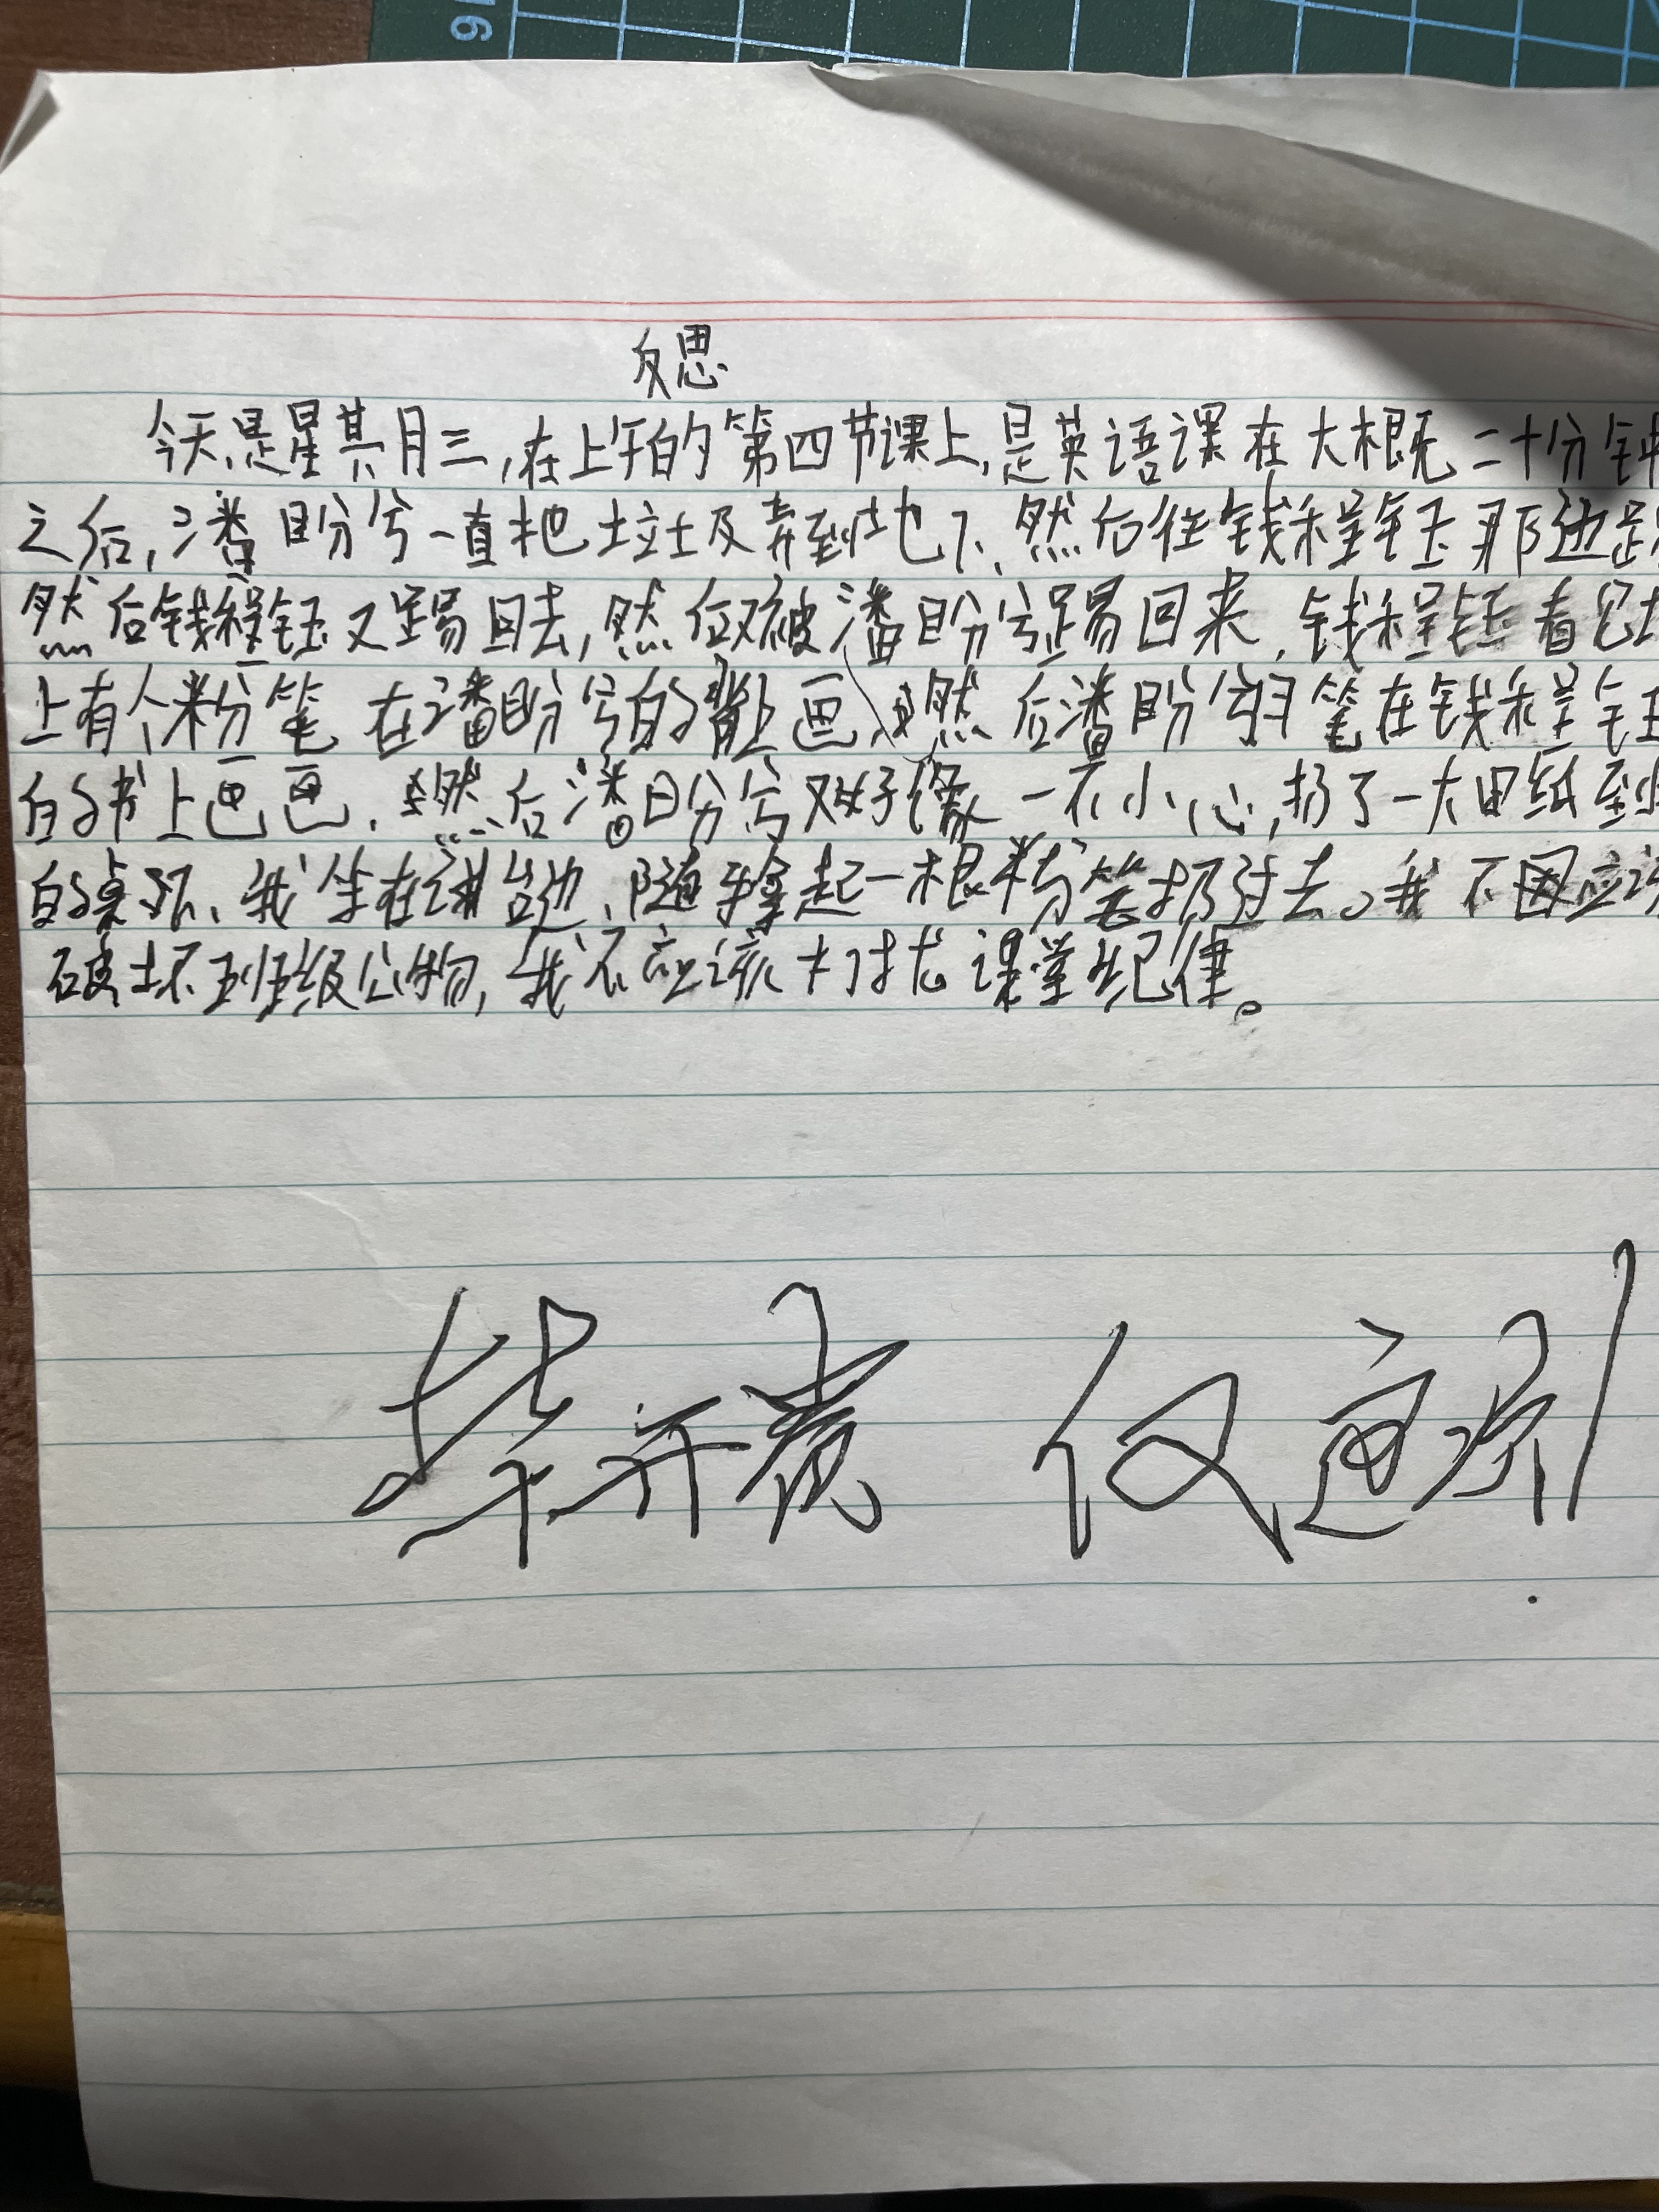 6
反思
今天,是星其月三,在上午的第四节课上,是英语课在大概二十分钟
之后,潘盼兮一直把垃圾弄到地下、然后往钱程钰那边踢
然后钱程钰又踢回去,然后又被潘盼兮踢回来,钱程钰看见地
上有个粉笔 在潘盼兮的背上画、然后潘盼兮用笔在钱程钰
的书上画画.然后潘盼兮又好像一不小心,扔了一大团纸到
的桌子、我坐在讲台边、随手拿起一根粉笔扔过去。我不应该
破坏班级公物,我不应该打扰课堂纪律。